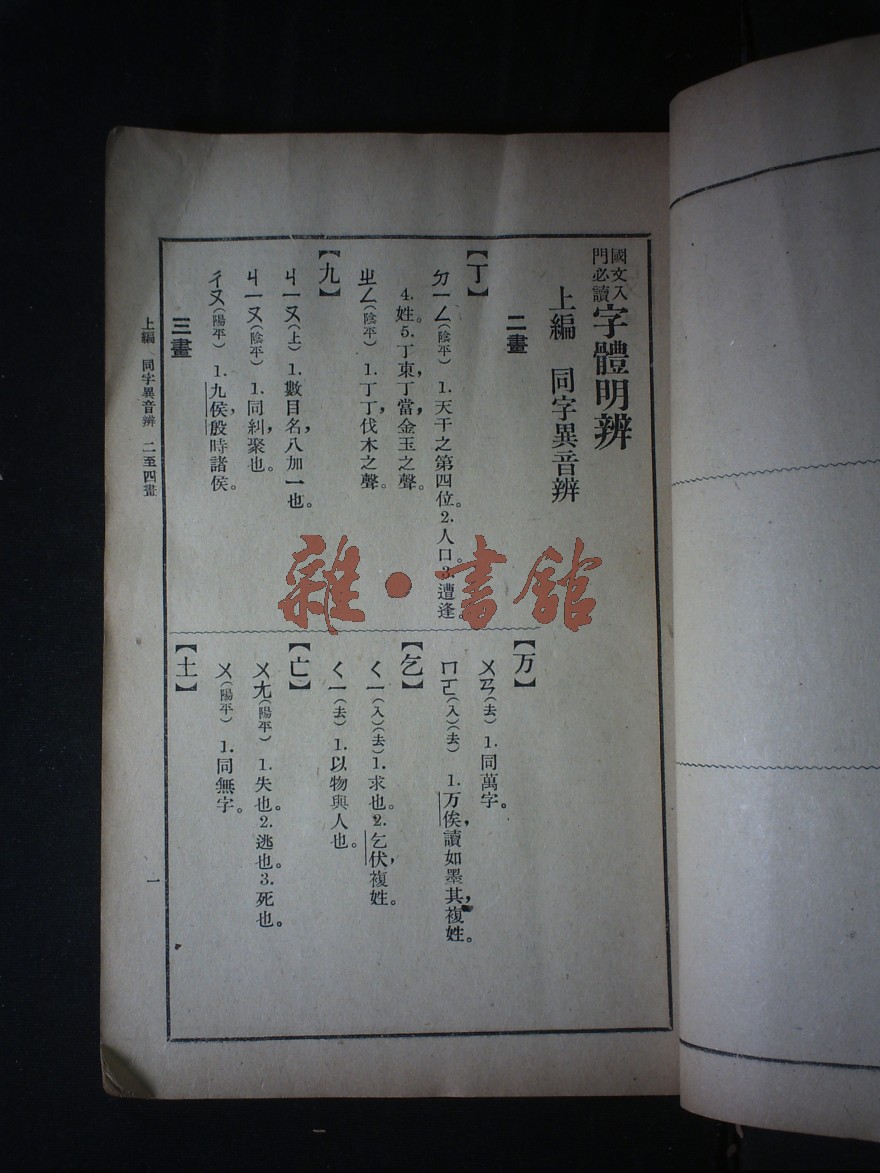 國文入
門必讀
字體明辨
上編　同字異音辨
二畫
【丁】
ㄉㄧㄥ(陰平)　1.天干之第四位。2.人口。3.遭逢。
4.姓。5.丁東，丁當，金玉之聲。
ㄓㄥ(陰平)　1.丁丁，伐木之聲。
【九】
ㄐㄧㄡ(上)　1.數目名，八加一也。
ㄐㄧㄡ(陰平)　1.同糾，聚也。
ㄔㄡ(陽平)　1.九侯，殷時諸侯。
三畫
【万】
ㄨㄢ(去)　1.同萬字。
ㄇㄛ(入)(去)　1.万俟，讀如墨其，複姓。
【乞】
ㄑㄧ(入)(去)1.求也。2.乞伏，複姓。
ㄑㄧ(去)　1.以物與人也。
【亡】
ㄨㄤ(陽平)　1.失也。2.逃也。3.死也。
ㄨ(陽平)　1.同無字。
【土】
上編　同字異音辨　二至四畫
一
雜·書館